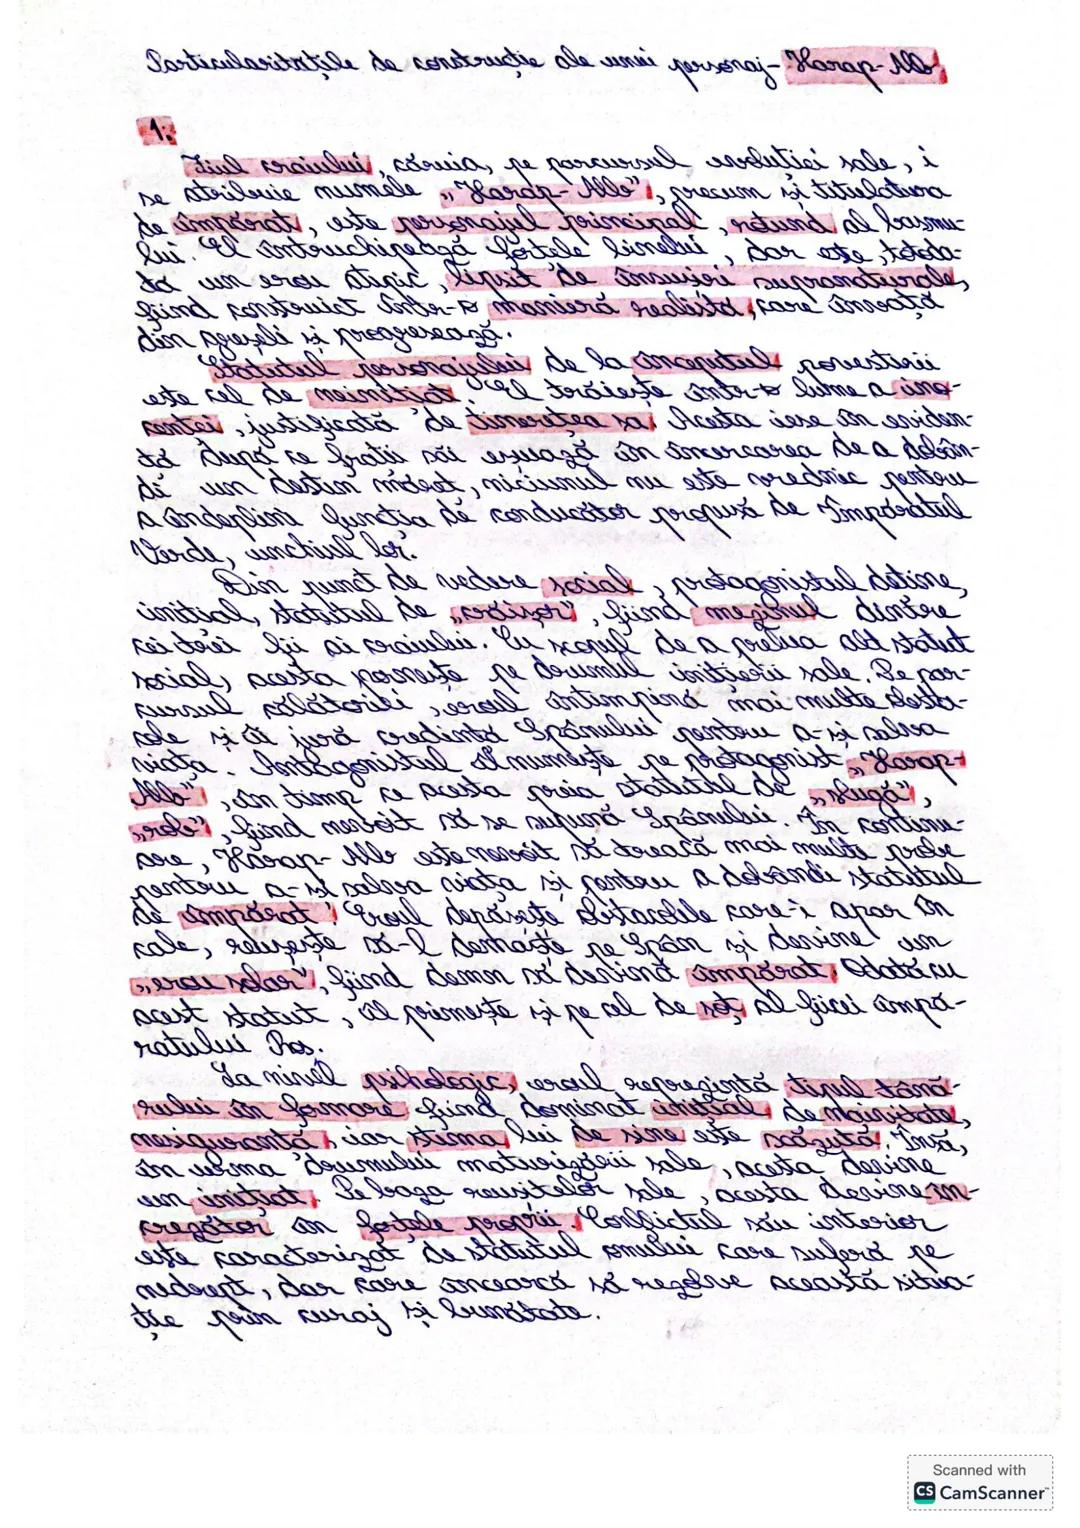 Particularitățile de construcție ale unui personaj- Harap-Alb
1.
Fiul craiului, căruia, pe parcursul evoluției sale, i
se atribuie numele „Harap-Alb", precum și titulatura
de împărat, este personajul principal, rotund al basmu-
lui. El întruchipează forțele binelui, dar este, toto-
tă un erou atipic, lipsit de însușiri supranaturale,
fiind construit într-o manieră realistă, care învață
din greșeli și progresează.
Statutul personajului de la începutul povestirii
este cel de neinițiat. El trăiește într-o lume a ino-
cenței, justificată de tinerețea sa. Acesta iese în eviden-
ță după ce frații săi eșuează în încercarea de a dobân-
di un destin măreț, niciunul nu este vrednic pentru
a îndeplini funcția de conducător propusă de Împăratul
Verde, unchiul lor.
Din punct de vedere social, protagonistul deține,
inițial, statutul de „crăișor", fiind mezinul dintre
cei trei fii ai craiului. Cu scopul de a prelua alt statut
social, acesta pornește pe drumul inițierii sale. Pe par-
cursul călătoriei, eroul întimpină mai multe obsta-
cole și îi jură credință Spânului pentru a-și salva
viața. Antagonistul îl numește pe protagonist „Harap-
Alb", în timp ce acesta preia statutul de „slugă",
„rob", fiind nevoit să se supună Spânului. În continu-
are, Harap-Alb este nevoit să treacă mai multe probe
pentru a-și salva viața și pentru a dobândi statutul
de împărat. Eroul depășește obstacolele care-i apar în
cale, reușește să-l demaște pe Spân și devine un
„erou solar", fiind demn să devină împărat. Odată cu
acest statut, îl primește și pe cel de soț al fiicei împă-
ratului Roș.
La nivel psihologic, eroul reprezintă tipul tână-
rului în formare fiind dominat inițial de naivitate,
nesiguranță, iar stima lui de sine este scăzută. Însă,
în urma drumului maturizării sale, acesta devine
un inițiat. Pe baza reușitelor sale, acesta devine în-
crezător în forțele proprii. Conflictul său interior
este caracterizat de statutul omului care suferă pe
nedrept, dar care încearcă să rezolve această situa-
ție prin curaj și bunătate.
Scanned with
CS CamScanner